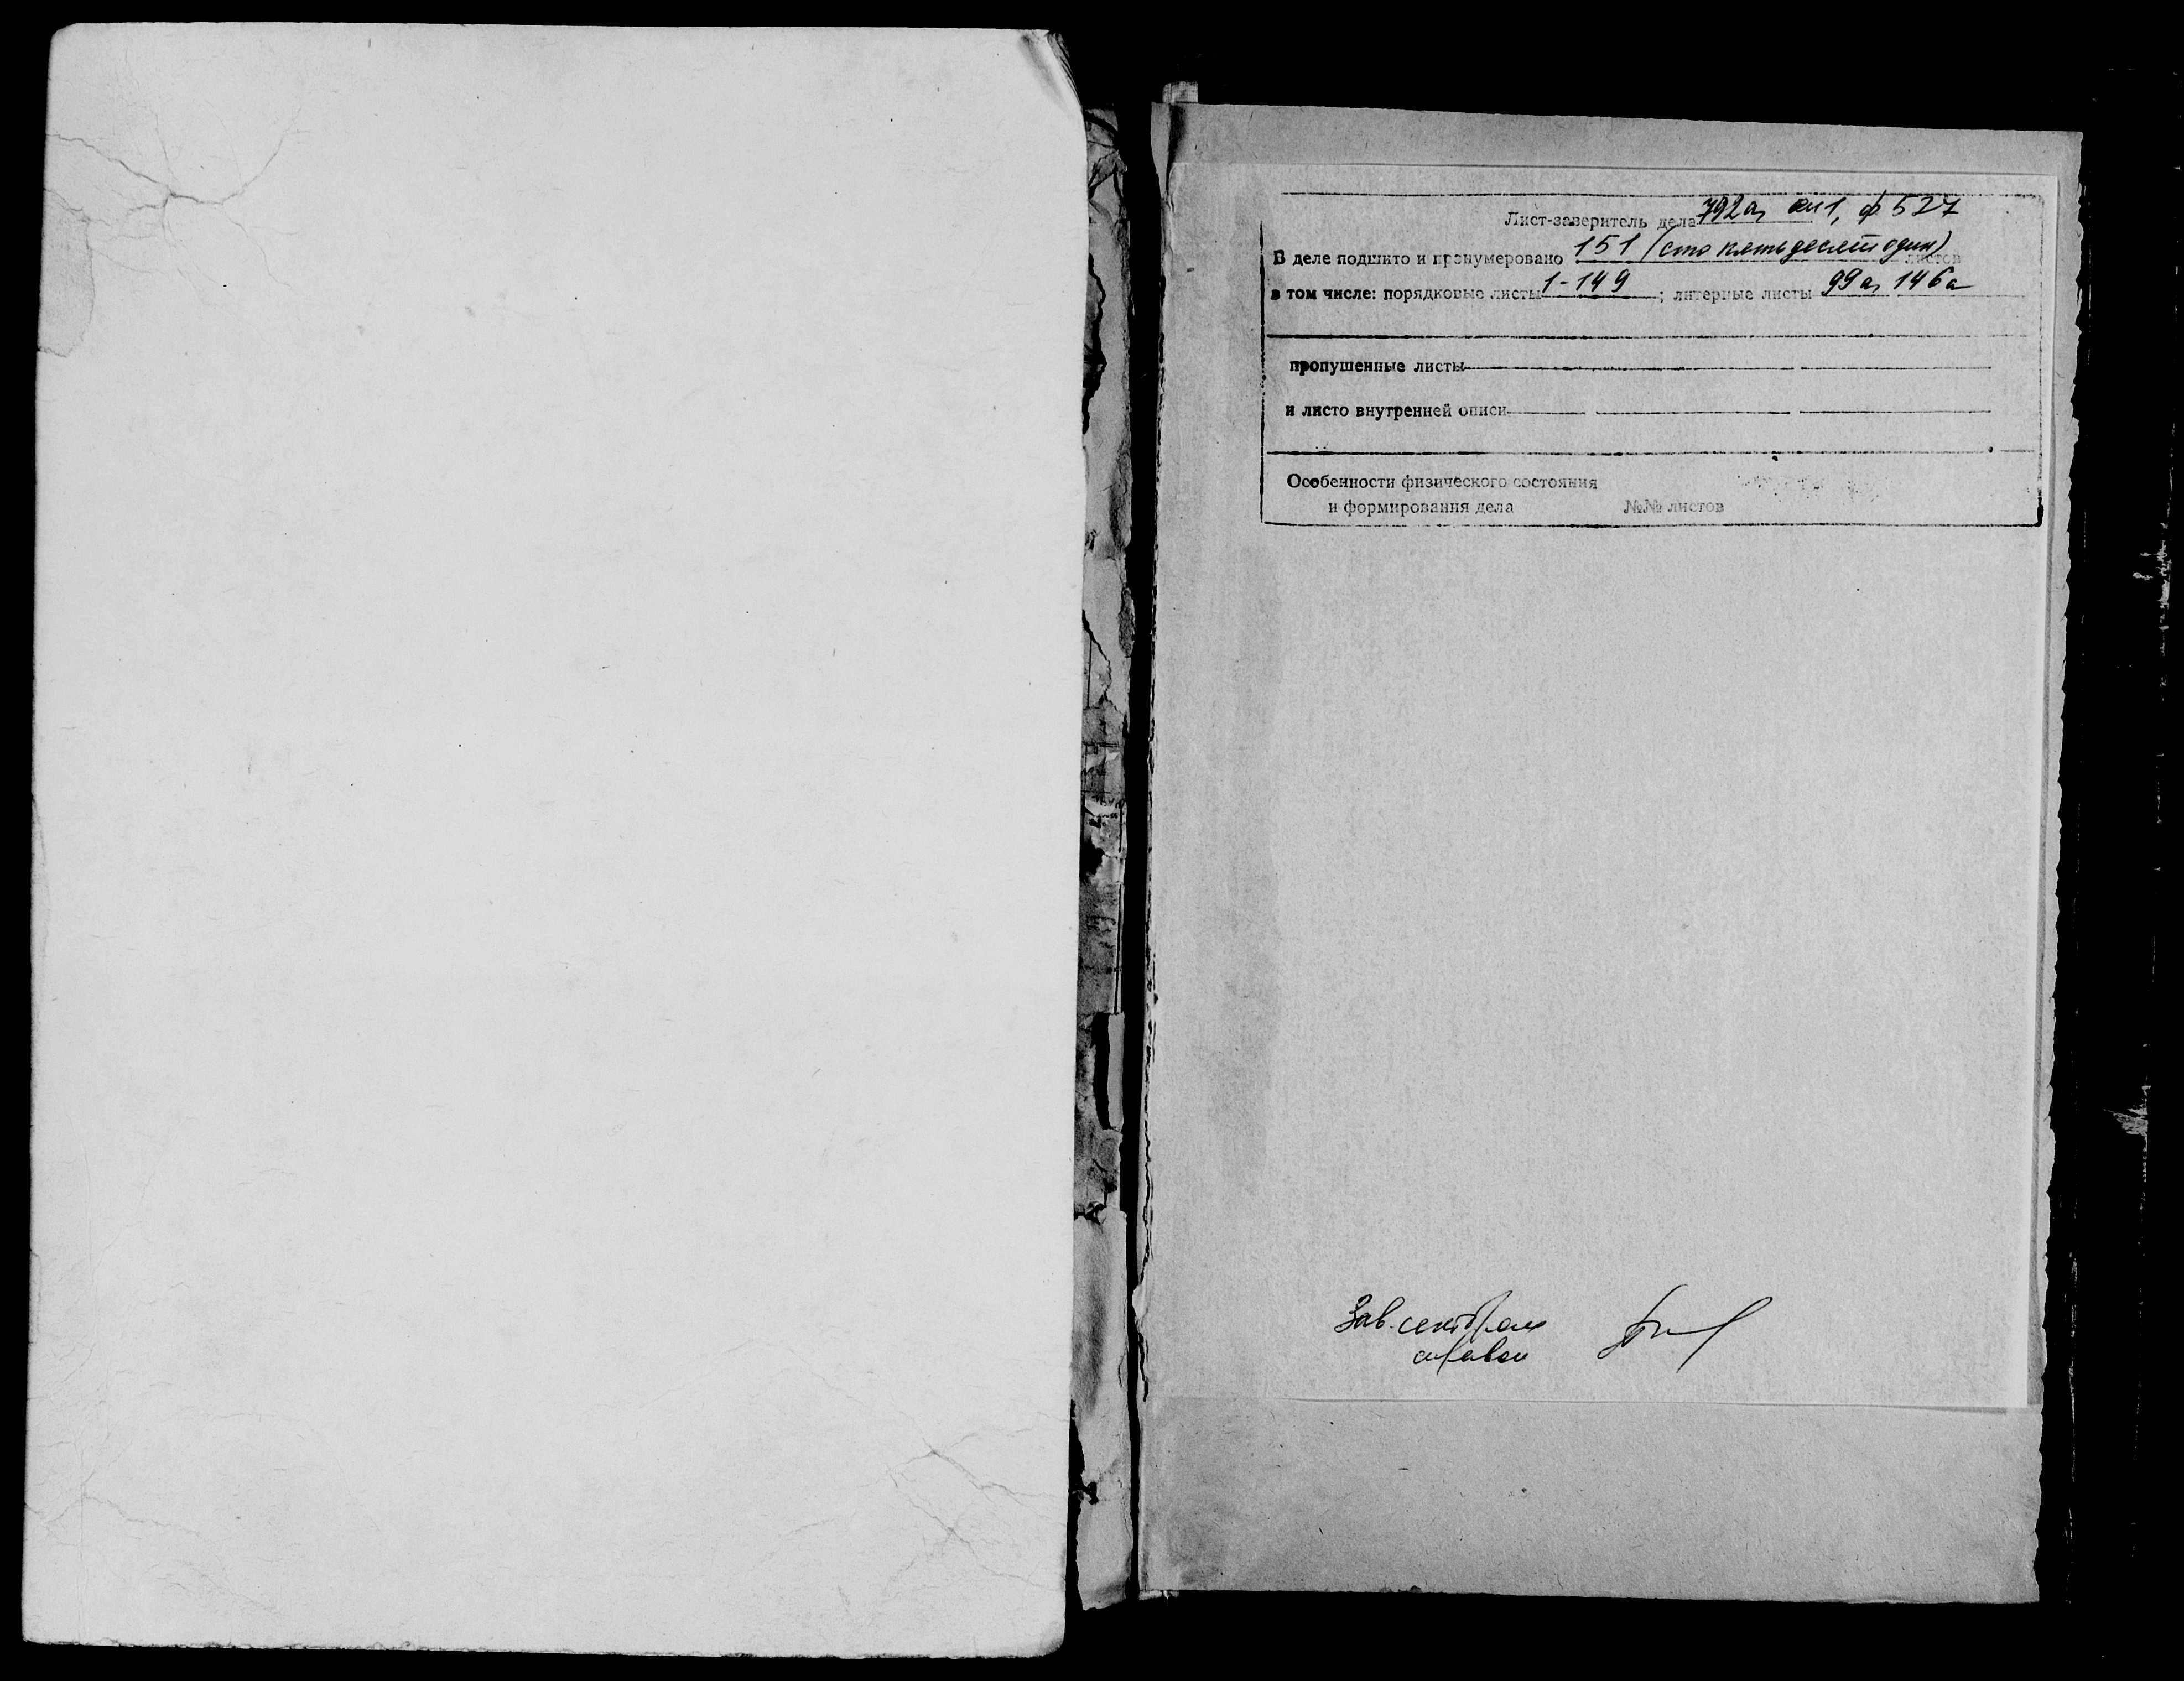 Лист-заверитель дела 792а, оп1, ф 527
В деле подшито и пронумеровано 151 (сто пятьдесят один) листов
в том числе: порядковые листы 1-149 ; литерные листы 99а, 146а
пропушенные листы
и листо внутренней описи
Особенности физического состояния
и формирования дела №№ листов
Зав. сектором